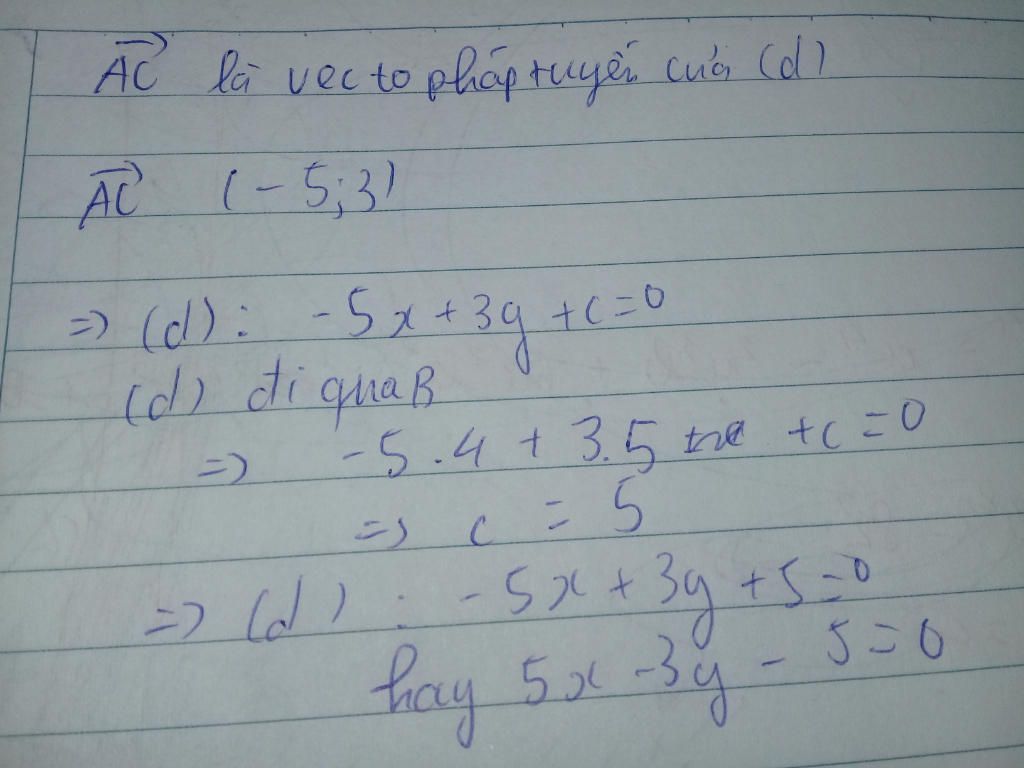 AC là vecto pháp tuyến của (d)
AC (-5;3)
=> (d): -5x+3y+c=0
(d) đi qua B
=> -5.4+3.5 +c=0
=> c = 5
=> (d) : -5x+3y+5=0
hay 5x-3y-5=0